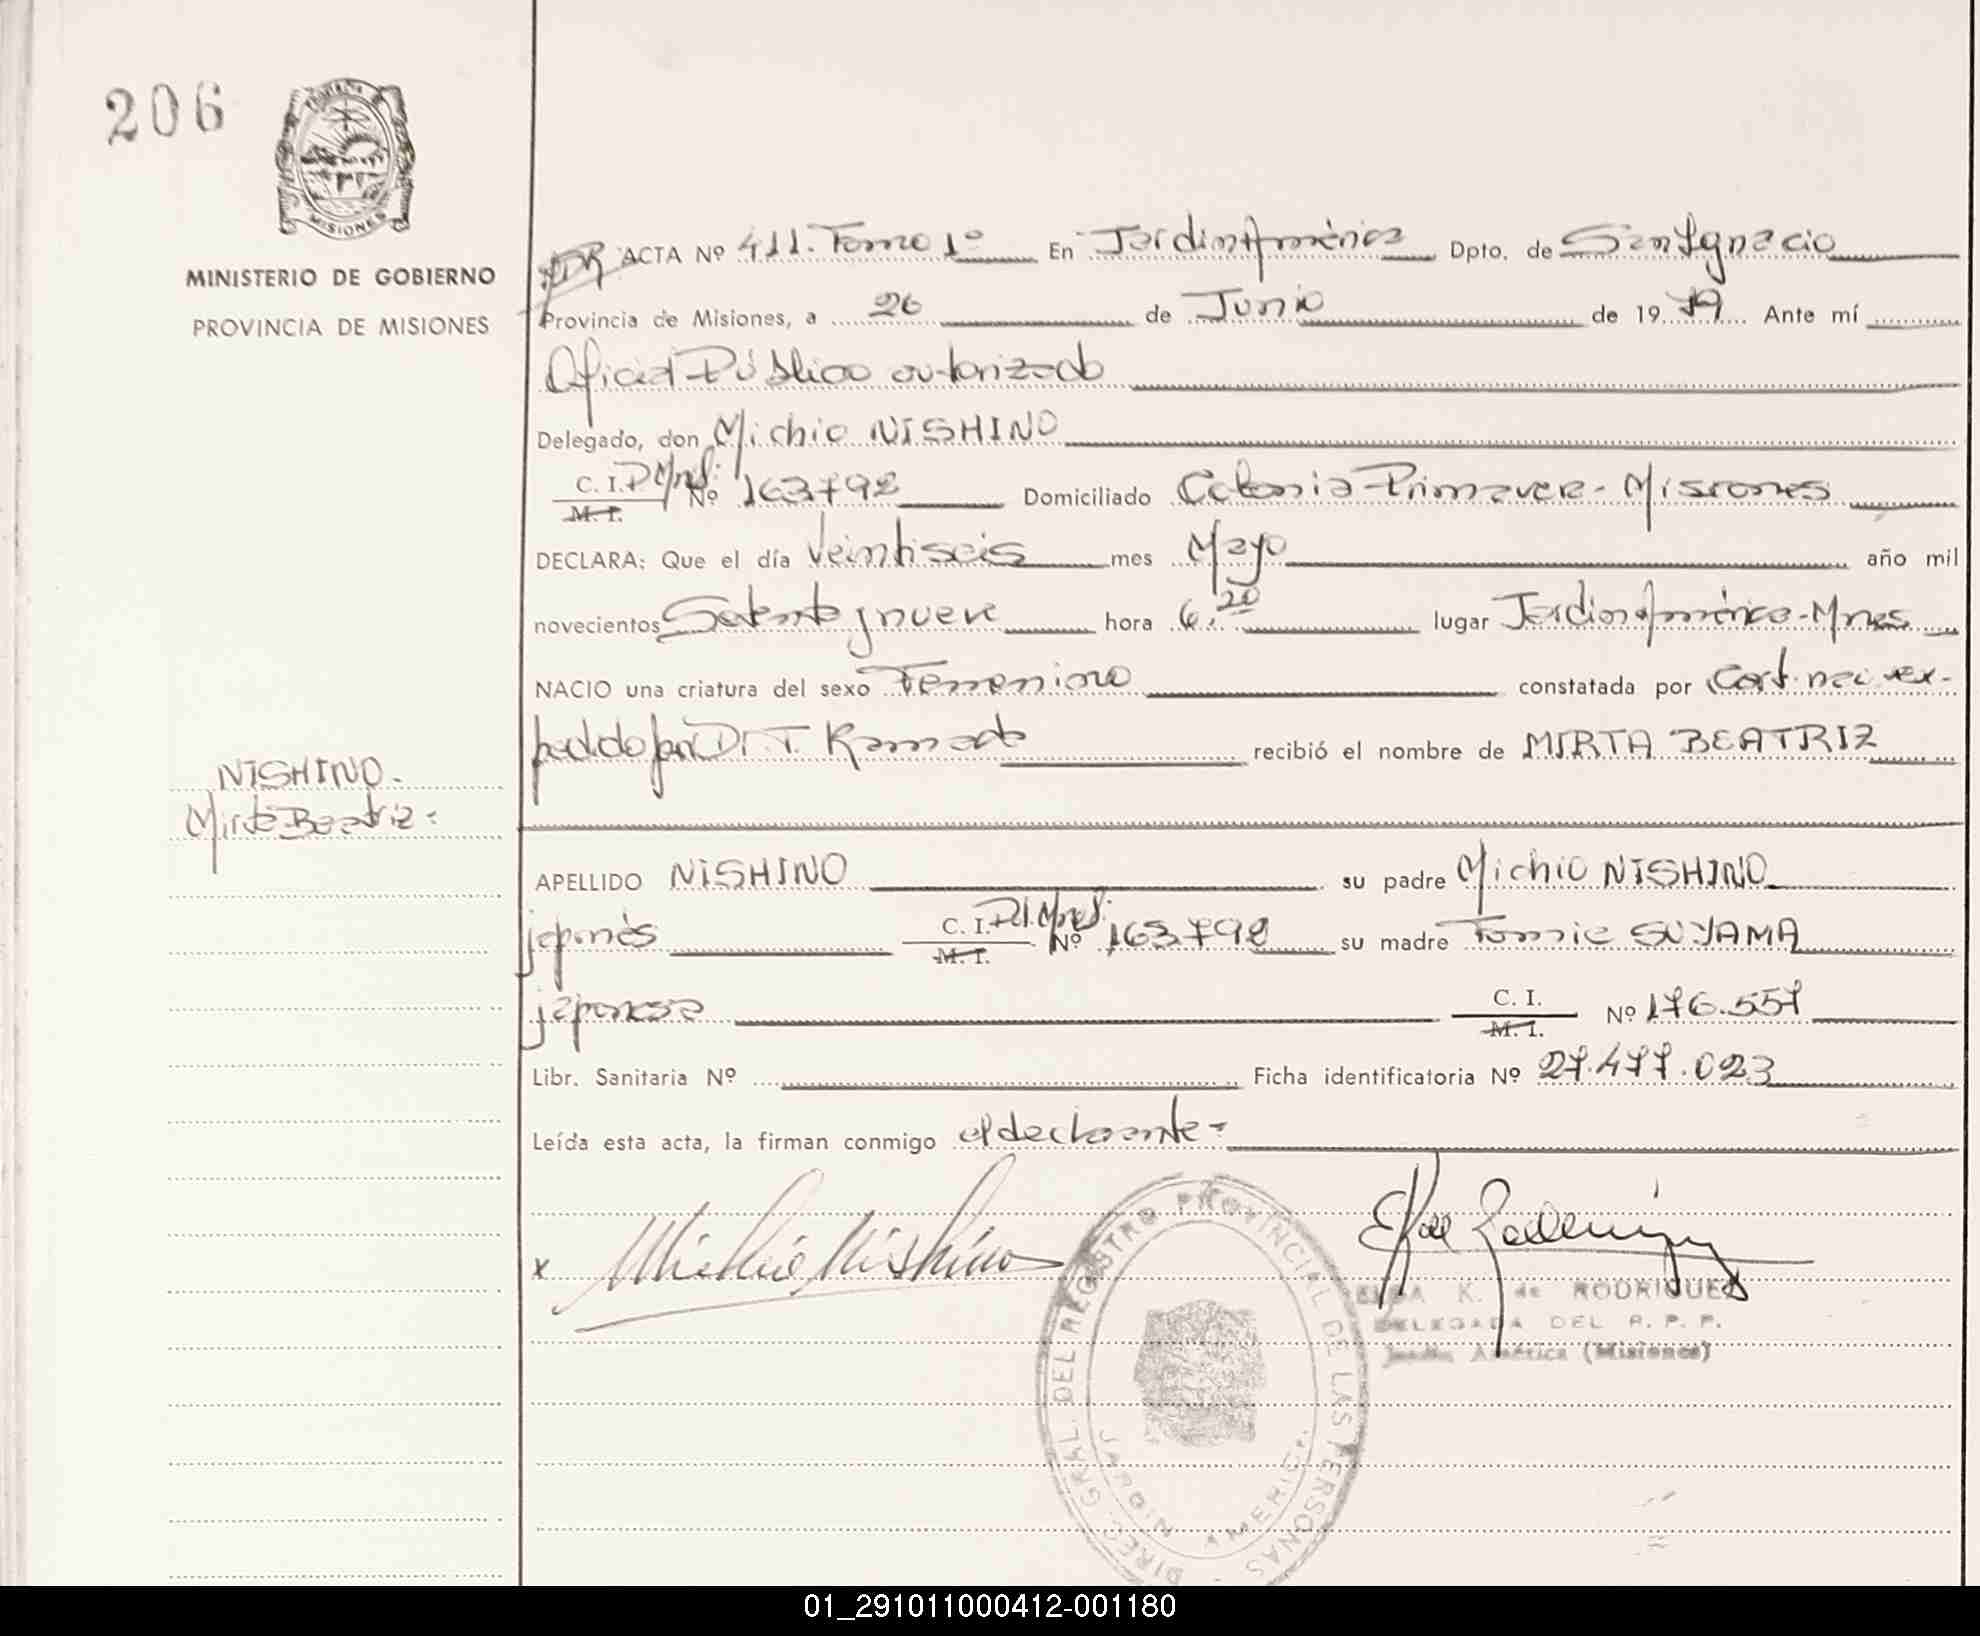 206
MINISTERIO DE GOBIERNO
PROVINCIA DE MISIONES
ACTA Nº 411. Tomo 1º En Jardin América Dpto. de San Ignacio
Provincia de Misiones, a 26 de Junio de 1979 Ante mí
Oficial Público autorizado
Delegado, don Michio NISHINO
C. I. Nº 163798 Domiciliado Colonia Primavera - Misiones
M. I.
DECLARA: Que el día veintiseis mes Mayo año mil
novecientos Setenta y nueve hora 6,20 lugar Jardin América - Mnes
NACIO una criatura del sexo Femenino constatada por Cert. nac. ex-
pedido por Dr. T. recibió el nombre de MIRTA BEATRIZ
NISHINO.
Mirta Beatriz.
APELLIDO NISHINO su padre Michio NISHINO
japonés C. I. Nº 163798 su madre Tomie SUYAMA
M. I.
japonesa C. I. Nº 176.557
M. I.
Libr. Sanitaria Nº Ficha identificatoria Nº 27.477.023
Leída esta acta, la firman conmigo el declarante -
x Michio Nishino
ELBA K. de RODRIGUEZ
DELEGADA DEL R. P. P.
Jardín América (Misiones)
DIREC. GRAL. DEL REGISTRO PROVINCIAL DE LAS PERSONAS -
JARDIN AMERICA
01_291011000412-001180